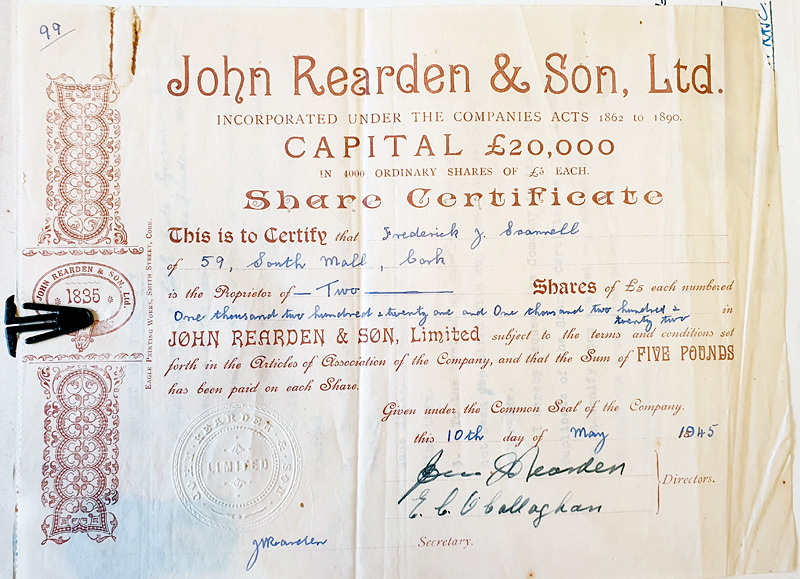 99
John Rearden & Son, Ltd.
INCORPORATED UNDER THE COMPANIES ACTS 1862 to 1890.
CAPITAL £20,000
IN 4000 ORDINARY SHARES OF £5 EACH.
Share Certificate
This is to Certify that Frederick J. Scannell
of 59, South Mall, Cork
is the Proprietor of Two Shares of £5 each numbered
One thousand two hundred & twenty one and One thousand two hundred &
twenty two in
JOHN REARDEN & SON, Limited subject to the terms and conditions set
forth in the Articles of Association of the Company, and that the Sum of FIVE POUNDS
has been paid on each Share.
Given under the Common Seal of the Company.
this 10th day of May 1945
Rearden
E. C. O'Callaghan
Directors.
JWRearden
Secretary.
JOHN REARDEN & SON, Ltd.
1835
EAGLE PRINTING WORKS, SMITH STREET, CORK.
JOHN REARDEN & SON
LIMITED